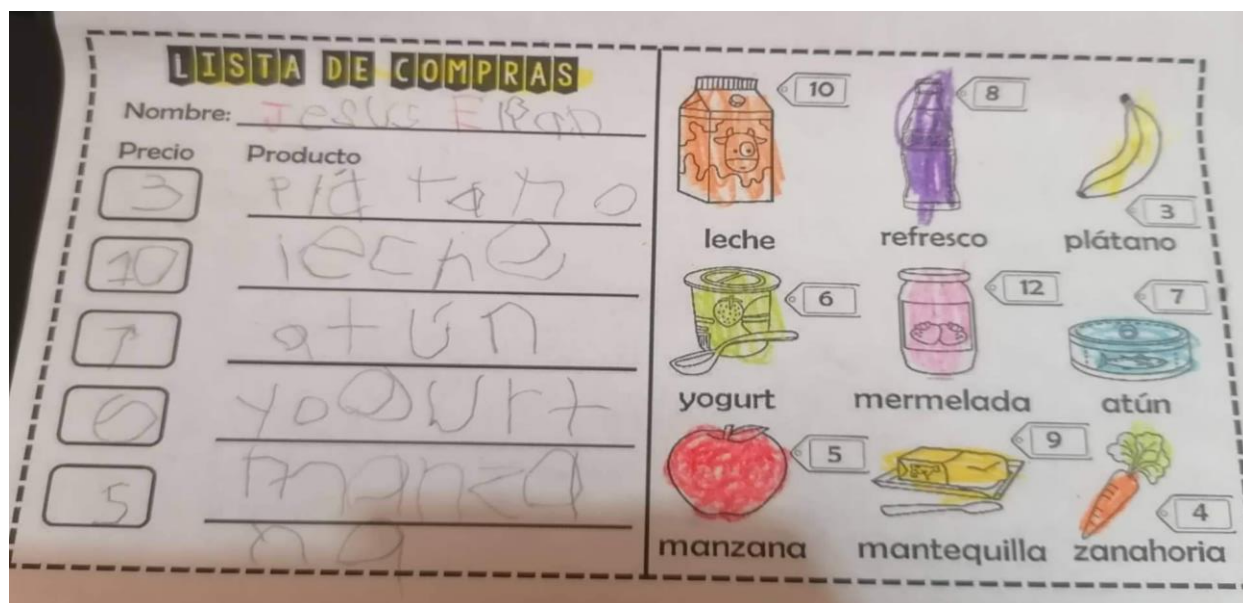 LISTA DE COMPRAS
Nombre: Jesus
Precio Producto
3 plátano
10 leche
7 atún
6 yogurt
5 manza
na
10 8
3
leche refresco plátano
6 12 7
yogurt mermelada atún
5 9
4
manzana mantequilla zanahoria